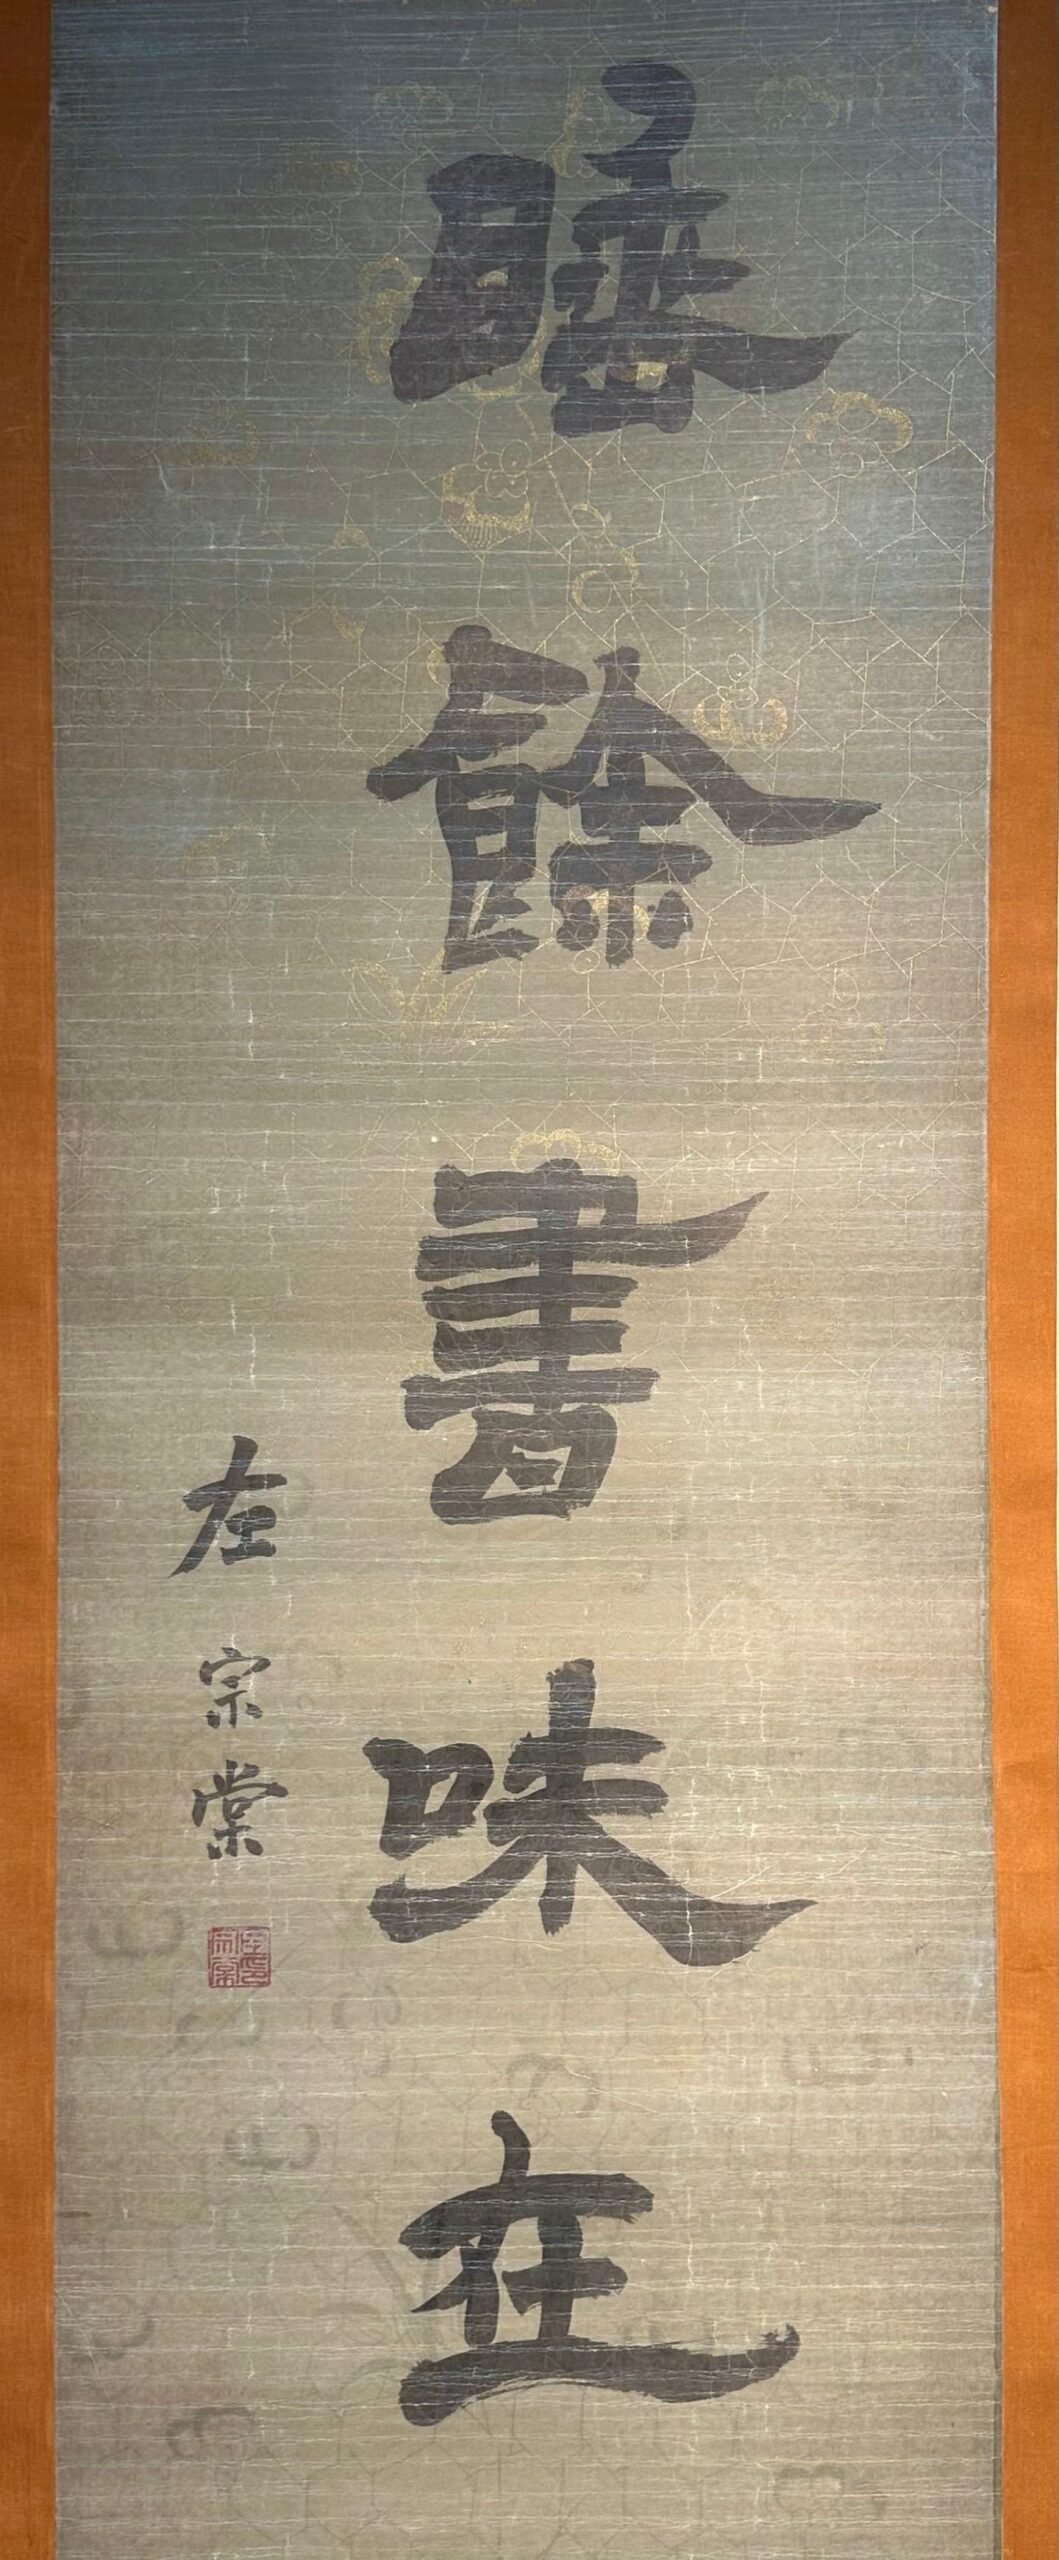 睡餘書味在
左宗棠